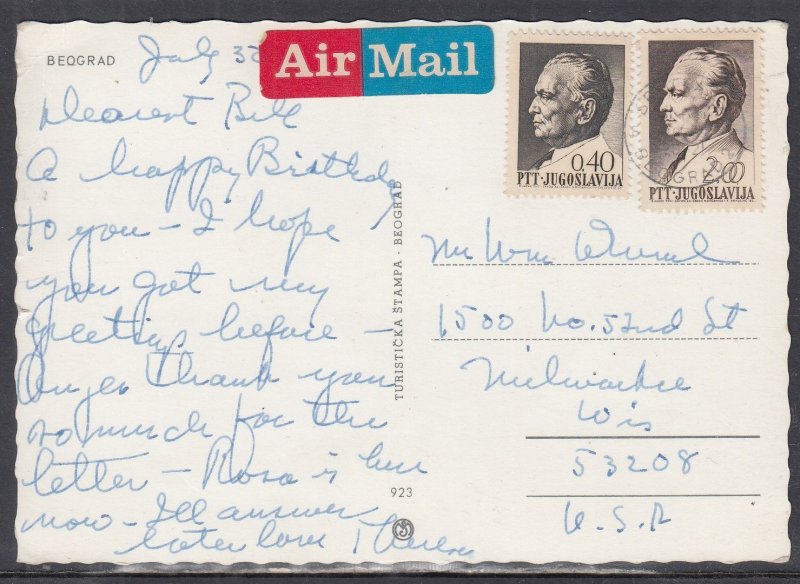 BEOGRAD
July
Air Mail
Dearest Bill
A happy Birthday
to you - I hope
you got my
greetings before -
thank you
so much for the
letter - Rosa is here
now - I'll answer
later love Theresa
TURISTIČKA ŠTAMPA - BEOGRAD
923
0.40
PTT·JUGOSLAVIJA
2.00
PTT·JUGOSLAVIJA
BEOGRAD
Mr Wm
1500 No. 52nd St
Milwaukee
Wis
53208
U.S.A